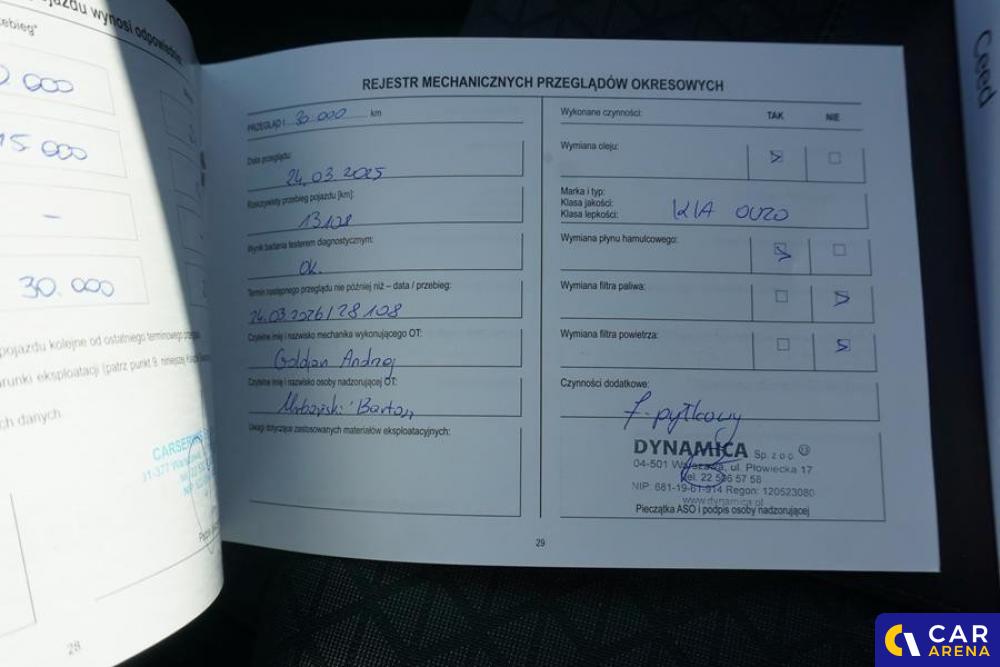 pojazdu wynosi odpowiednio
0 000
15 000
–
30.000
pojazdu kolejne od ostatniego terminowego
runki eksploatacji (patrz punkt 9. niniejszej
ch danych
28
REJESTR MECHANICZNYCH PRZEGLĄDÓW OKRESOWYCH
PRZEGLĄD I 30 000 km
Data przeglądu:
24.03.2025
Rzeczywisty przebieg pojazdu [km]:
13108
Wynik badania testerem diagnostycznym:
OK.
Termin następnego przeglądu nie później niż – data / przebieg:
24.03.2026 / 28 108
Czytelne imię i nazwisko mechanika wykonującego OT:
Andrzej
Czytelne imię i nazwisko osoby nadzorującej OT:
Bartosz
Uwagi dotyczące zastosowanych materiałów eksploatacyjnych:
Wykonane czynności: TAK NIE
Wymiana oleju:
Marka i typ:
Klasa jakości:
Klasa lepkości:
KIA 0W20
Wymiana płynu hamulcowego:
Wymiana filtra paliwa:
Wymiana filtra powietrza:
Czynności dodatkowe:
f. pyłkowy
DYNAMICA Sp. z o.o.
04-501 Warszawa, ul. Płowiecka 17
tel. 22 516 57 58
NIP: 681-19-61-914 Regon: 120523080
www.dynamica.pl
Pieczątka ASO i podpis osoby nadzorującej
29
Ceed
CAR
ARENA